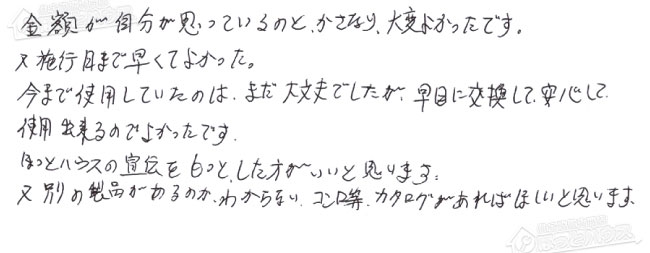 金額が自分が思っているのと、かさなり、大変よかったです。
又施行日まで早くてよかった。
今まで使用していたのは、まだ大丈夫でしたが、早目に交換して、安心して
使用出来るのでよかったです。
ほっとハウスの宣伝をもっと、した方がいいと思います。
又別の製品があるのか、わからない、コンロ等、カタログがあればほしいと思います。
ほっとハウス